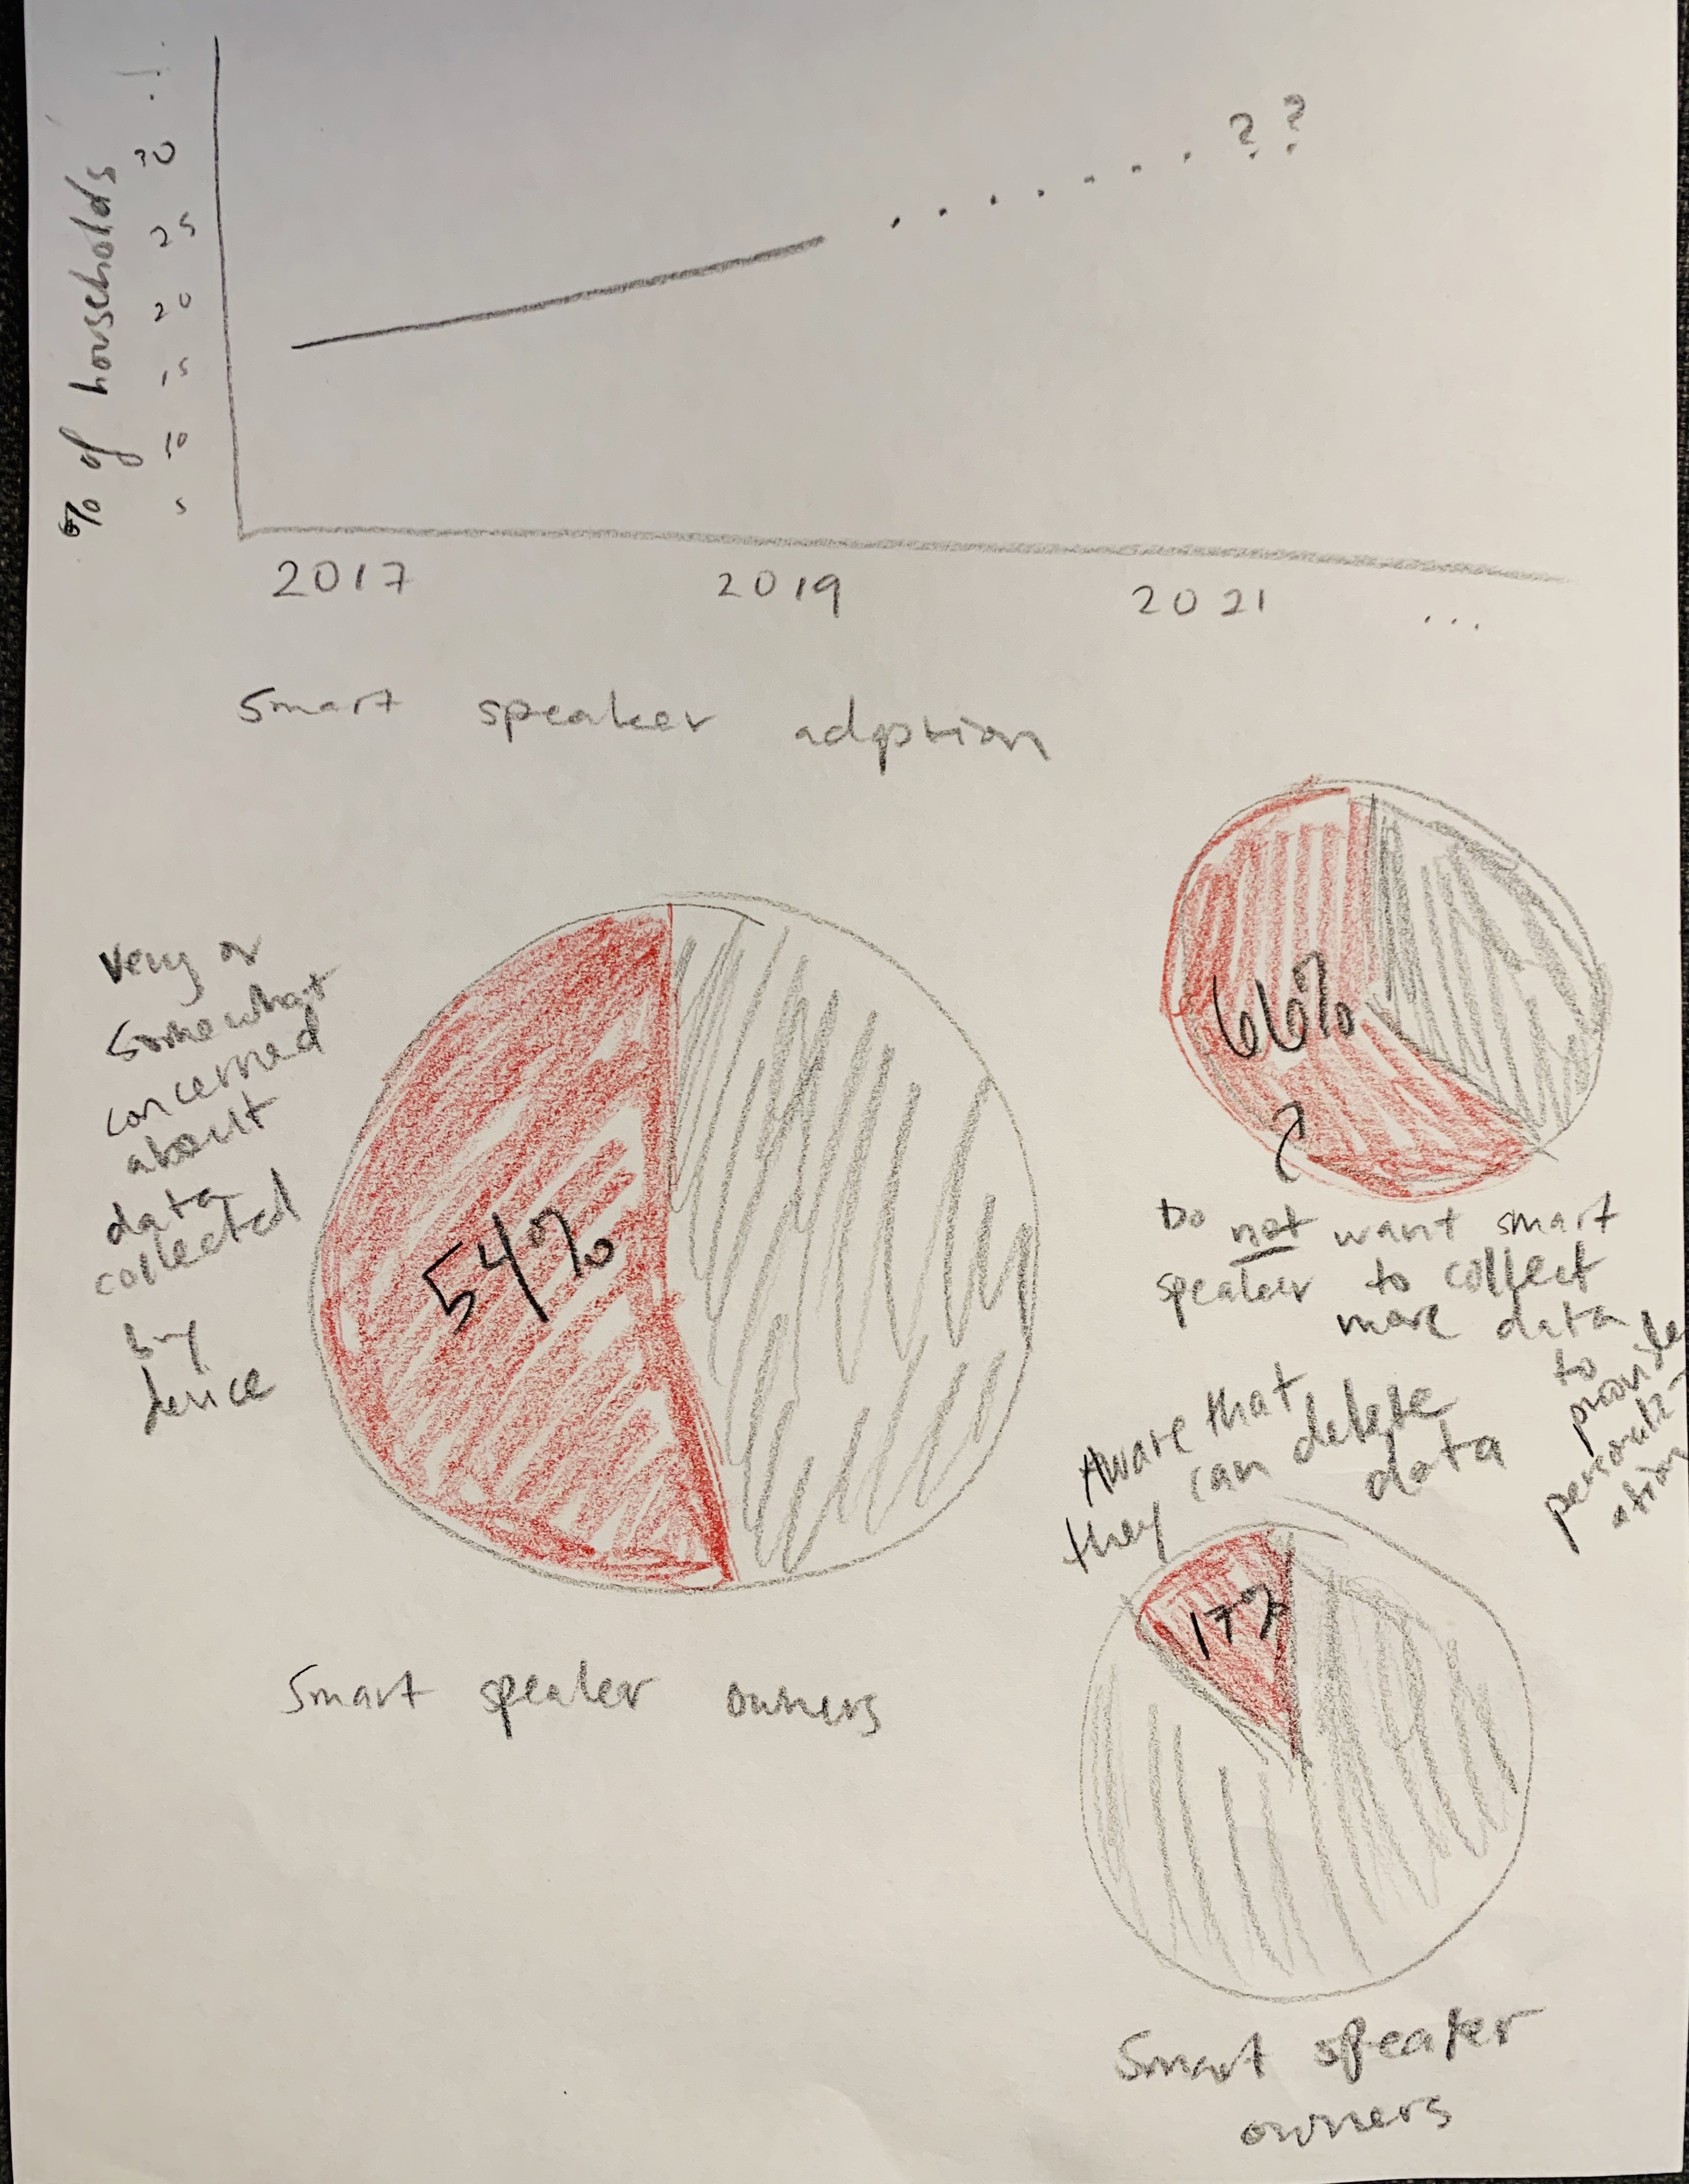 % of households
30
25
20
15
10
5
??
2017 2019 2021 ...
Smart speaker adoption
Very or
somewhat
concerned
about
data
collected
by
device
54%
Smart speaker owners
66%
Do not want smart
speaker to collect
more data
to
provide
personaliz-
ation
Aware that
they can delete
data
17%
Smart speaker
owners